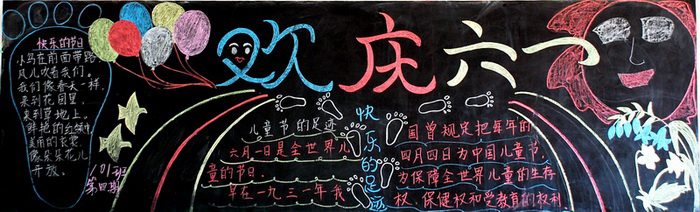 欢庆六一
快乐的节日
小鸟在前面带路
风儿吹着我们。
我们像春天一样,
来到花园里,
来到草地上。
鲜艳的红领巾
美丽的衣裳,
像朵朵花儿
开放。
八01班
第四期
儿童节的足迹
六月一日是全世界儿
童的节日。
早在一九三一年我
快乐的足迹
国曾规定把每年的
四月四日为中国儿童节,
为保障全世界儿童的生存
权、保健权和受教育的权利